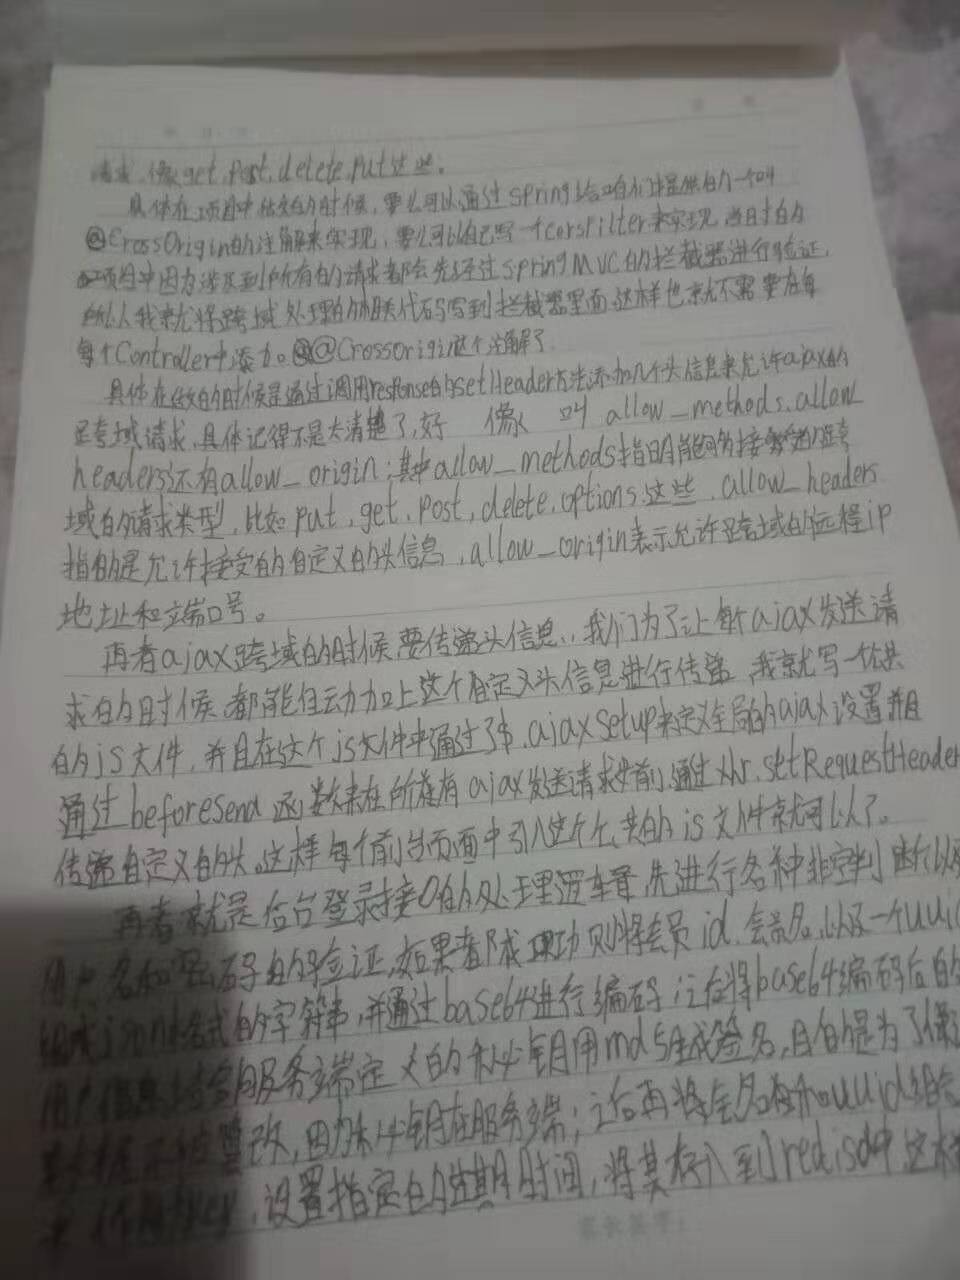 请求,像get,post,delete,put这些。
具体在项目中做的时候,要么可以通过spring给咱们提供的一个叫
@CrossOrigin的注解来实现,要么可以自己写一个corsFilter来实现,当时的
项目中因为涉及到所有的请求都会先经过springMVC的拦截器进行验证,
所以我就将跨域处理的相关代码写到拦截器里面,这样也就不需要在每
每个Controller中添加@CrossOrigin这个注解了
具体在做的时候是通过调用response的setHeader方法添加几个头信息来允许ajax的
跨域请求,具体记得不是太清楚了,好 像 叫 allow_methods,allow_
headers还有allow_origin;其中allow_methods指明能够接受的跨
域的请求类型,比如put,get,post,delete,options这些,allow_headers
指的是允许接受的自定义的头信息,allow_origin表示允许跨域的远程ip
地址和端口号。
再者ajax跨域的时候,要传递头信息,我们为了让每个ajax发送请
求的时候,都能自动加上这个自定义头信息进行传递,我就写一个公共
的js文件,并且在这个js文件中通过了$.ajaxSetup来定义全局的ajax设置并且
通过beforeSend函数来在所有ajax发送请求之前,通过xhr.setRequestHeader
传递自定义的头,这样每个前台页面中引入这个公共的js文件就可以了。
再者就是后台登录接口的处理逻辑,先进行各种非空判断以及
用户名和密码的验证,如果都成功则将会员id,会员名,以及一个uuid
组成json格式的字符串,并通过base64进行编码;之后将base64编码后的
用户信息与服务端定义的私钥用md5生成签名,目的是为了保证
数据不被篡改,因为私钥在服务端;之后再将签名和uuid组合
来作为key,设置指定的过期时间,将其存入到redis中,这样
家长签字: